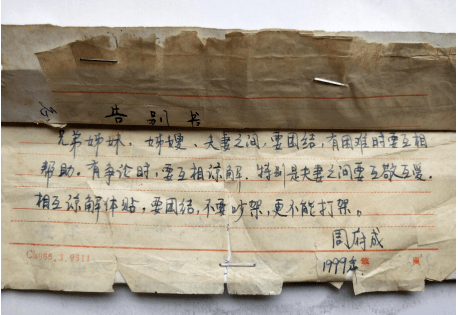 告别书
兄弟姊妹、姊嫂、夫妻之间,要团结,有困难时要互相
帮助。有争论时,要互相谅解。特别是夫妻之间要互敬互爱,
相互谅解体贴,要团结,不要吵架,更不能打架。
周府成
1999年.